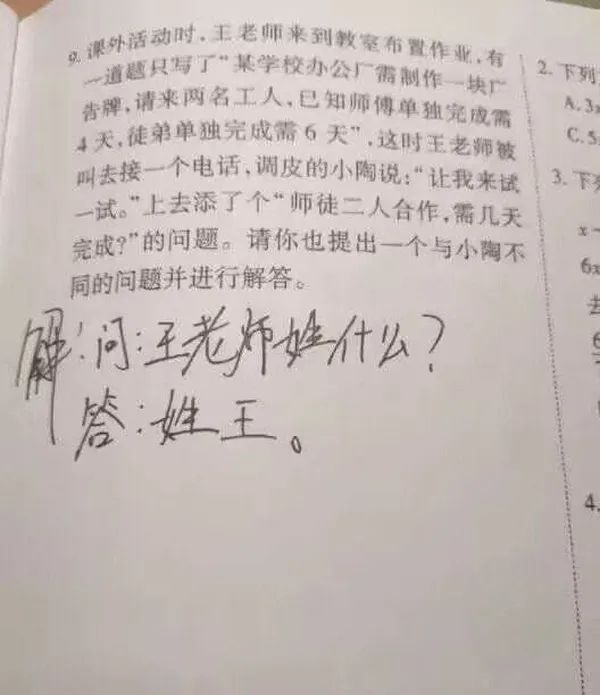 9. 课外活动时,王老师来到教室布置作业,有
一道题只写了“某学校办公厂需制作一块广
告牌,请来两名工人,已知师傅单独完成需
4天,徒弟单独完成需6天”,这时王老师被
叫去接一个电话,调皮的小陶说:“让我来试
一试。”上去添了个“师徒二人合作,需几天
完成?”的问题。请你也提出一个与小陶不
同的问题并进行解答。
解:问:王老师姓什么?
答:姓王。
2. 下列
A. 3x
C. 5
3. 下列
x
6x
去
6
4.